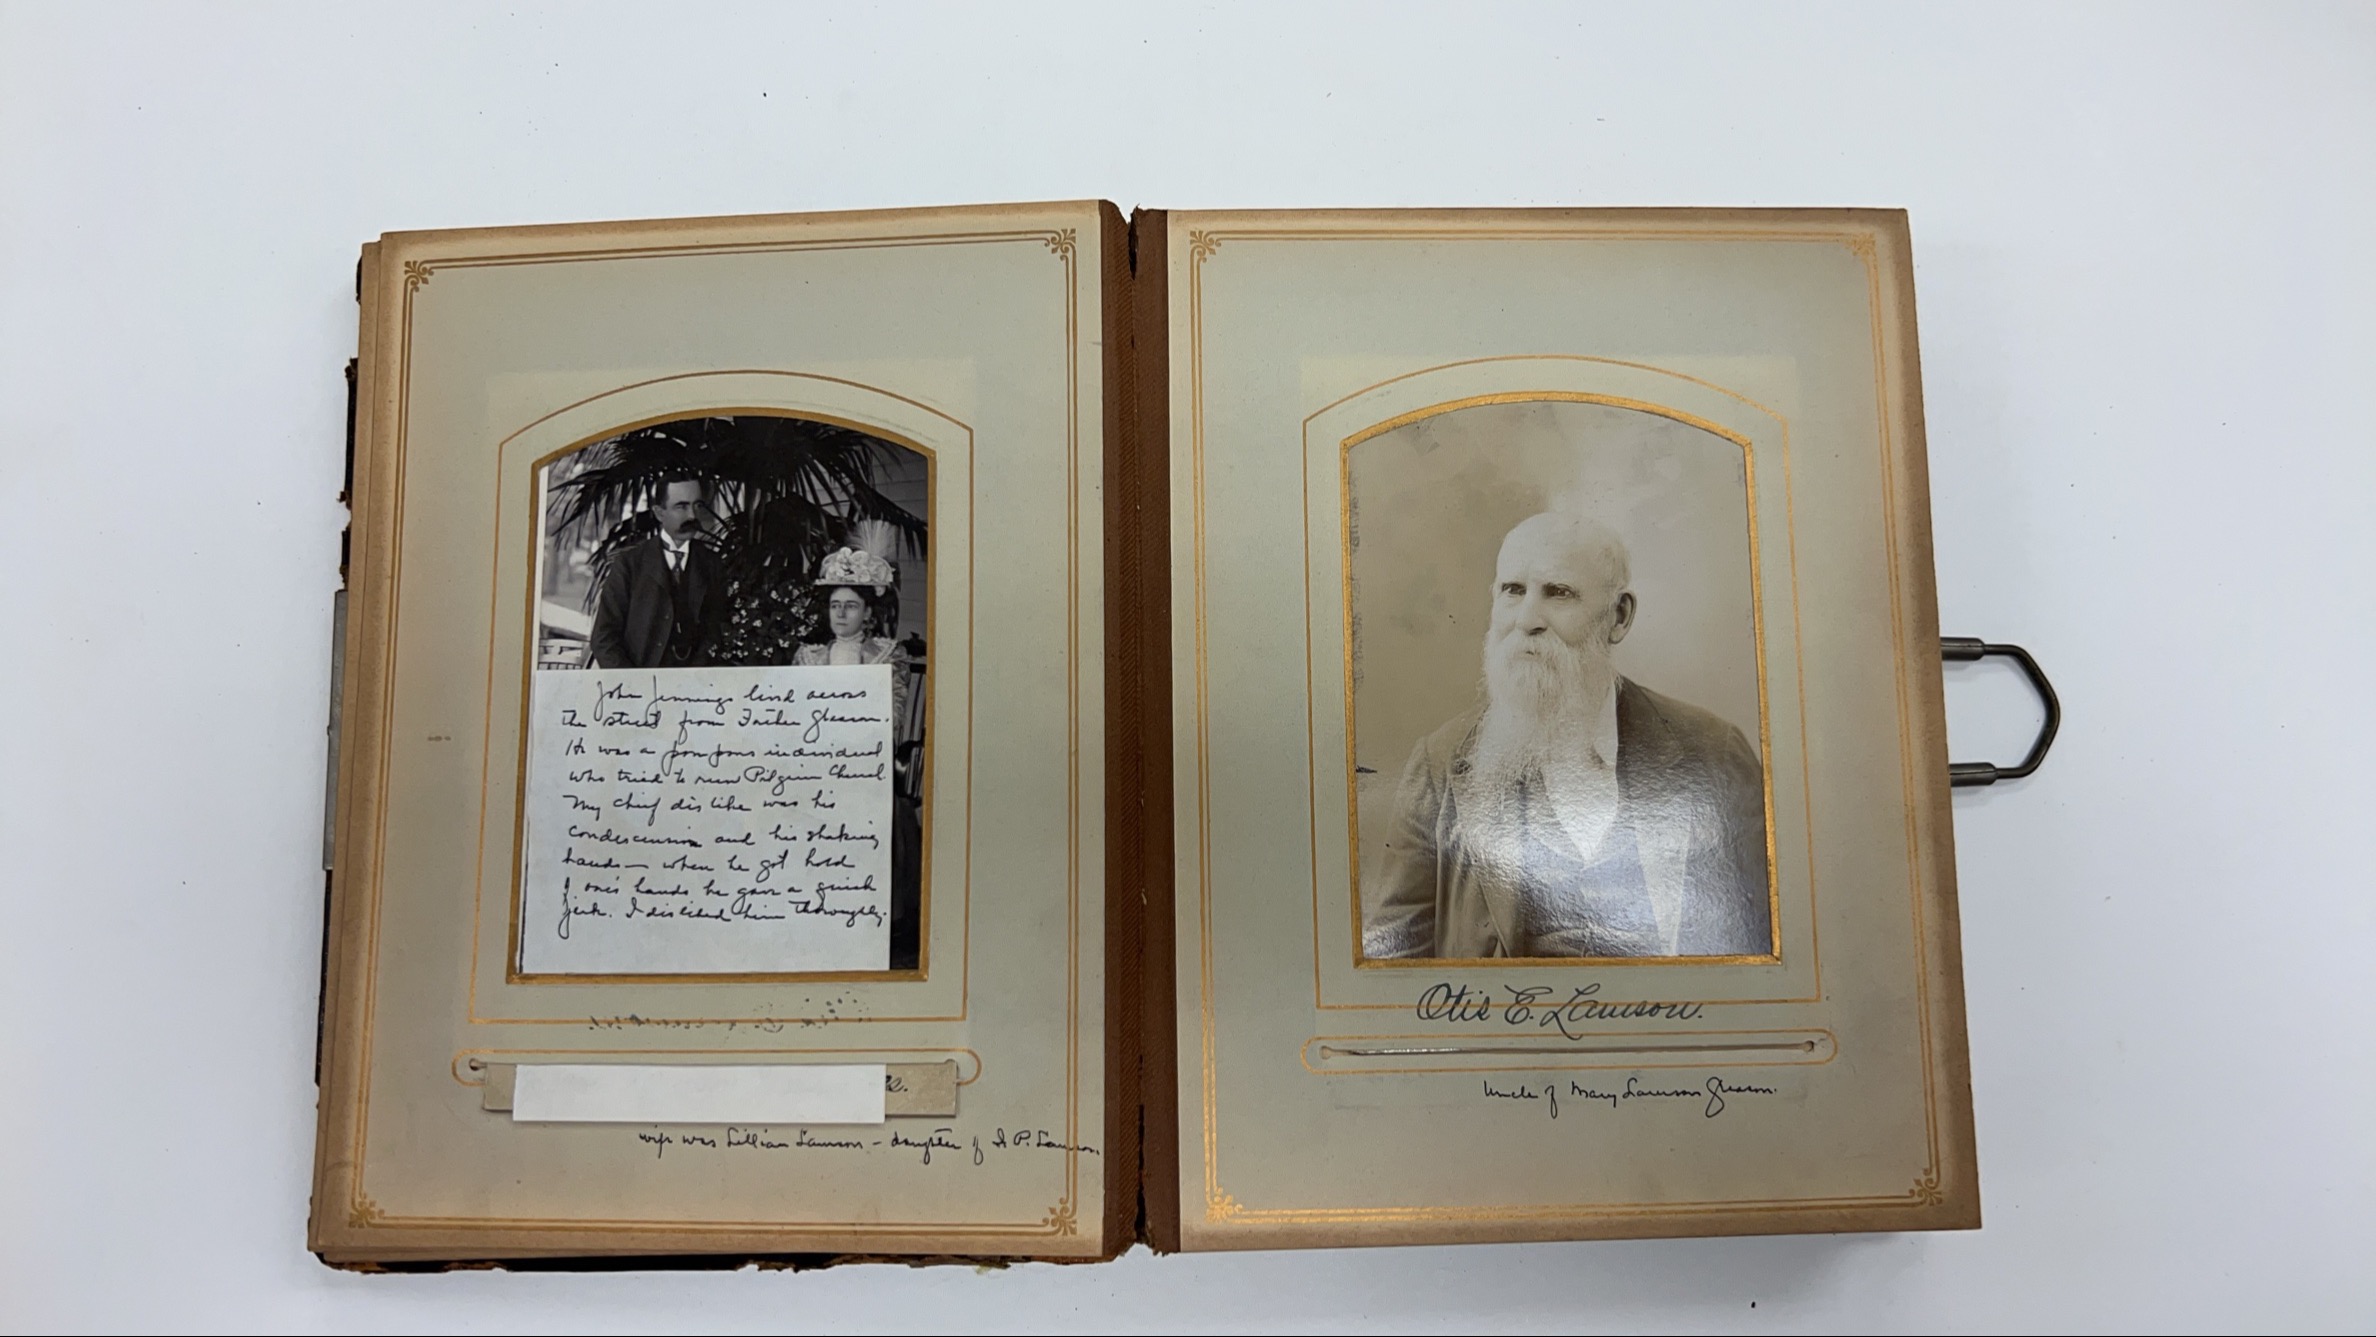 John Jennings lived across
the street from Father Gleason.
He was a pompous individual
who tried to run Pilgrim Church.
My chief dislike was his
condescension and his shaking
hands — when he got hold
of one's hands he gave a quick
jerk. I disliked him thoroughly.
wife was Lillian Lawson – daughter of I. P. Lawson
Otis E. Lawson.
Uncle of Mary Lawson Gleason.